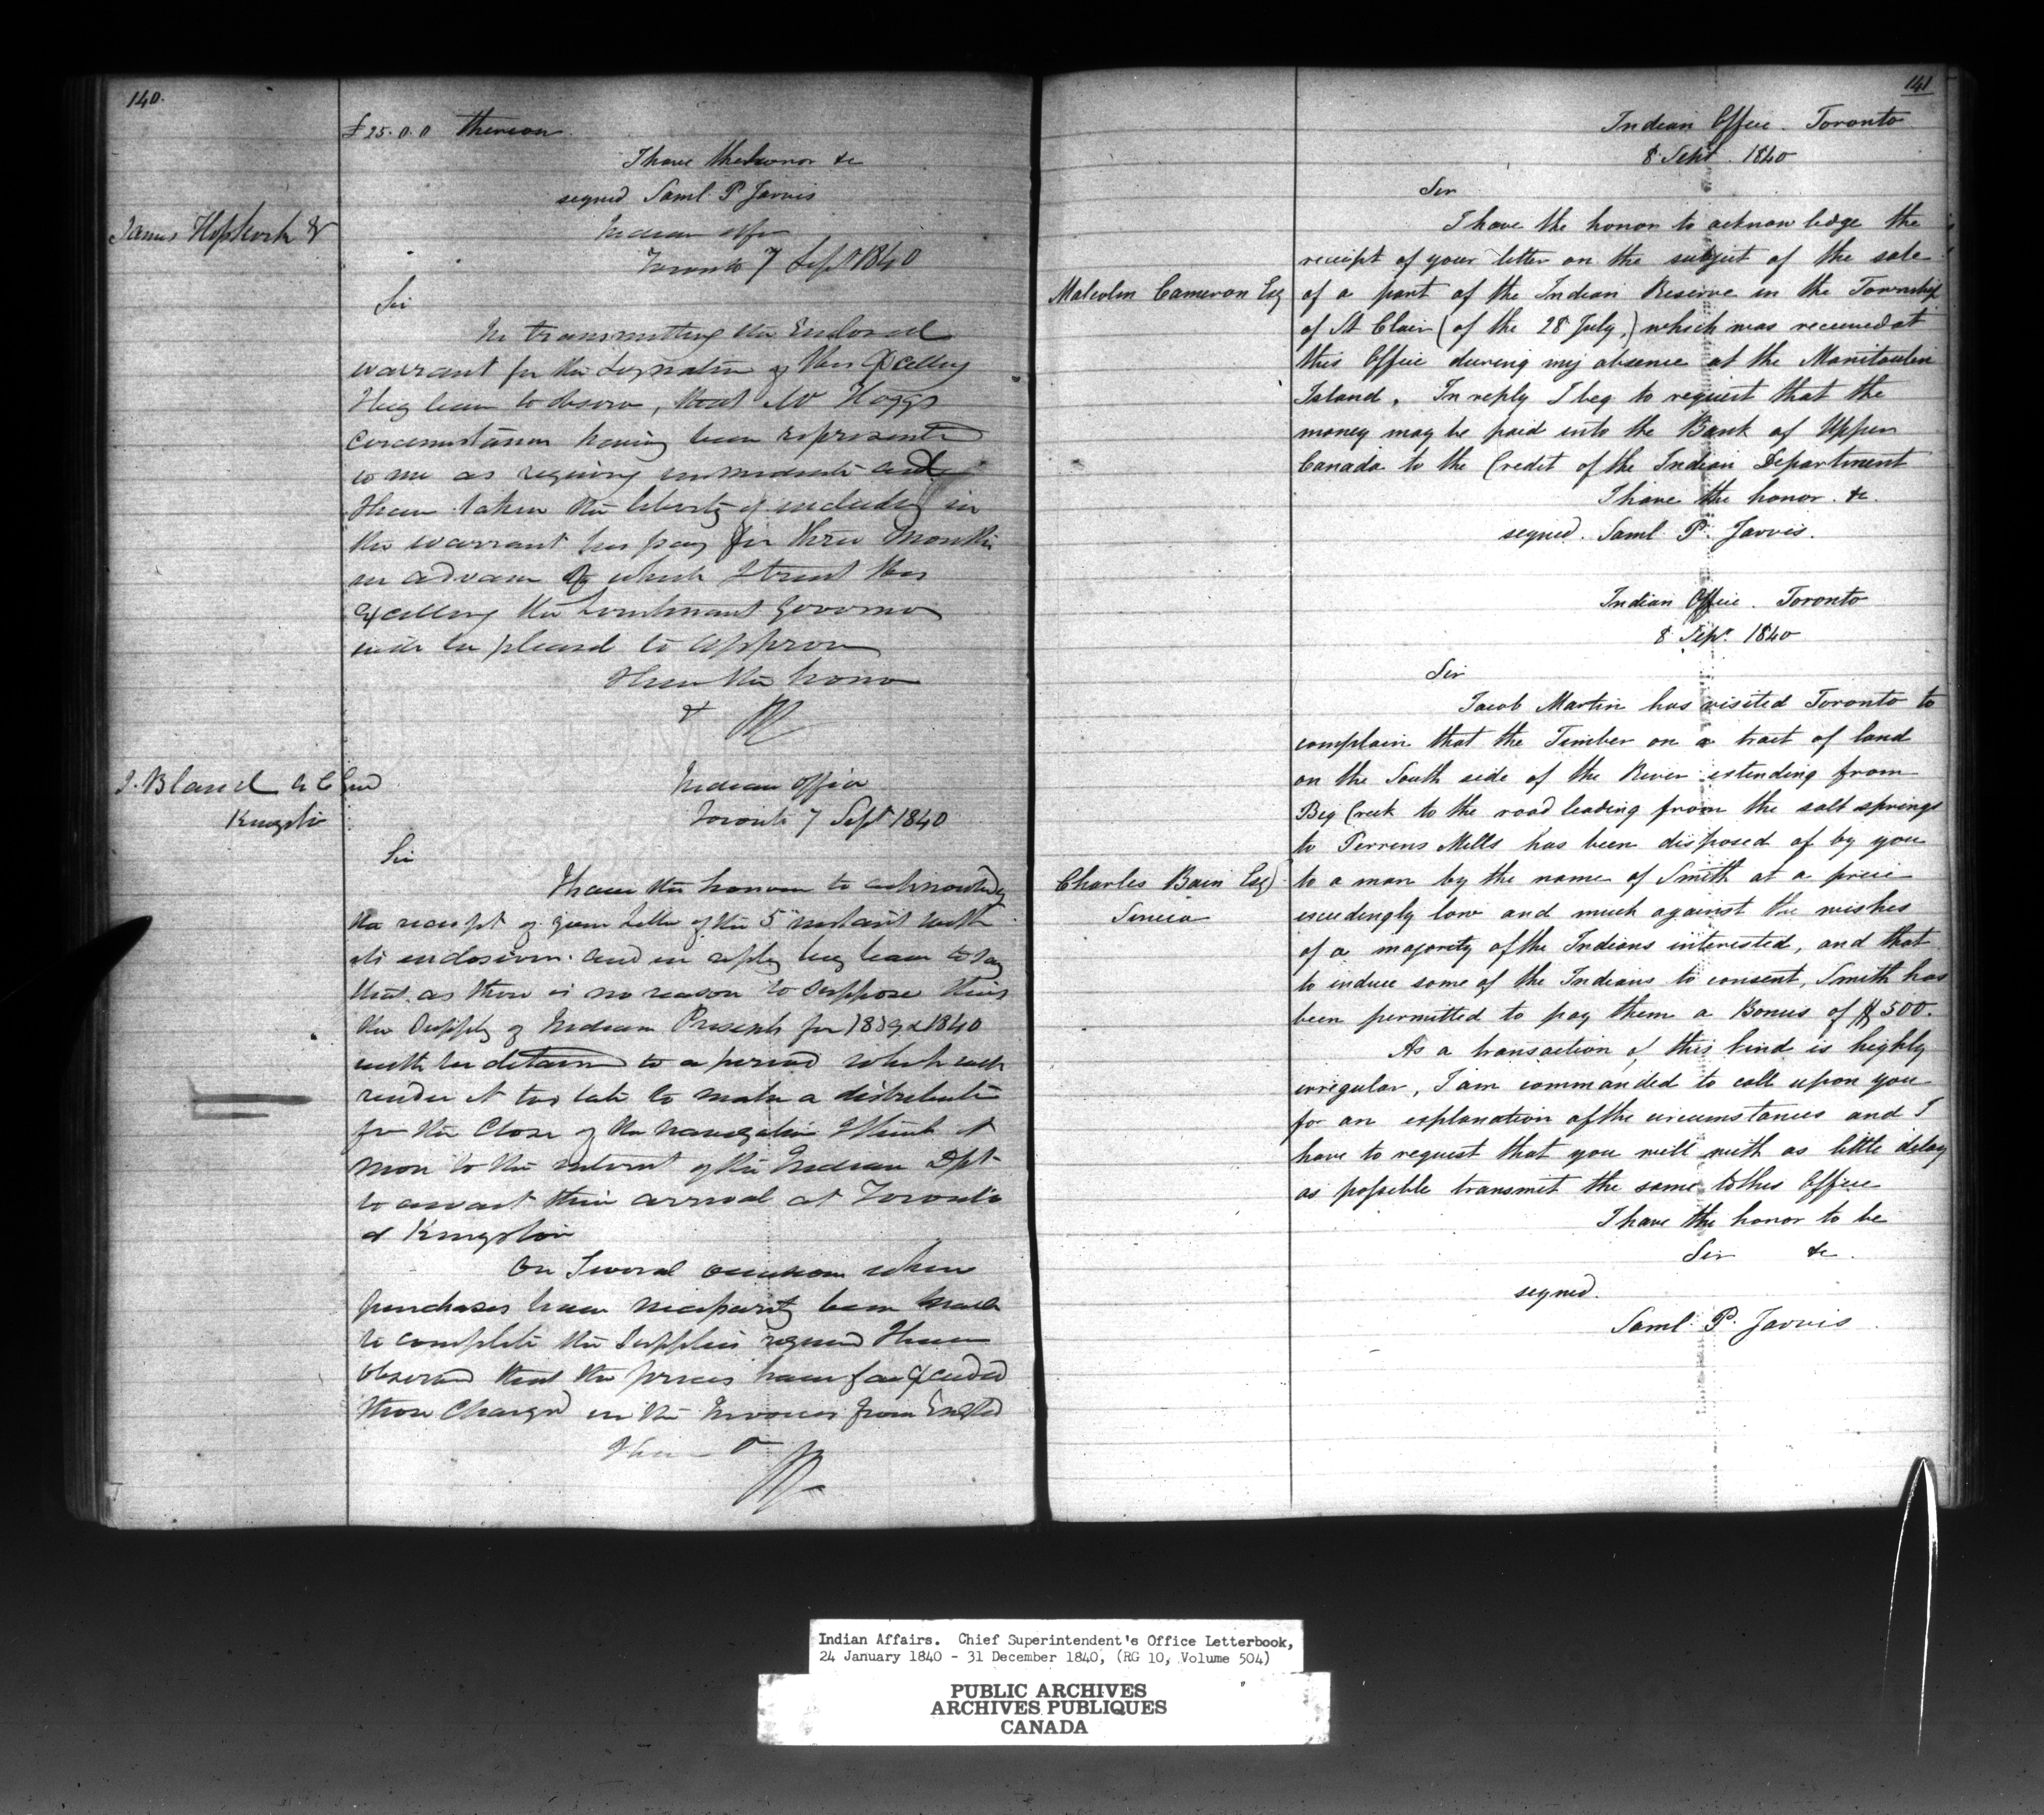 140.
£25.0.0 thereon
I have the honor &c
signed Saml P Jarvis
James Hopkirk &
Indian Office
Toronto 7 Sept 1840
Sir
In transmitting the Enclosed
warrant for the Signature of His Excellency
I beg leave to observe, that Mr Hoggs
circumstances having been represented
to me as requiring immediate aid
I have taken the liberty of including in
the warrant his pay for three Months
in advance of which I trust His
Excellency the Lieutenant Governor
will be pleased to approve
I have the honor
&
J. Bland
Kingston
Indian Office
Toronto 7 Sept 1840
Sir
I have the honour to acknowledge
the receipt of your Letter of the 5 instant with
its enclosures and in reply beg leave to say
that as there is no reason to suppose this
the Supply of Indian Presents for 1839 & 1840
will be detained to a period which will
render it too late to make a distribution
for the Close of the navigation I think it
more to the interest of the Indian Dpt
to await their arrival at Toronto
& Kingston
On Several occasions when
purchases have necessarily been made
to complete the Supplies required I have
observed that the prices have far Exceeded
those Charged in the Invoices from England
I have
141
Indian Office. Toronto
8 Sept. 1840
Sir
I have the honor to acknowledge the
receipt of your letter on the subject of the sale
Malcolm Cameron Esq
of a part of the Indian Reserve in the Township
of St Clair (of the 28 July,) which was received at
this Office during my absence at the Manitoulin
Island. In reply I beg to request that the
money may be paid into the Bank of Upper
Canada to the Credit of the Indian Department
I have the honor. &c.
signed. Saml. P. Jarvis.
Indian Office. Toronto
8 Sepr. 1840
Sir
Jacob Martin has visited Toronto to
complain that the Timber on a tract of land
on the South side of the River extending from
Big Creek to the road leading from the salt springs
to Perrens Mills has been disposed of by you
Charles Bain Esq
to a man by the name of Smith at a price
Seneca
exceedingly low and much against the wishes
of a majority of the Indians interested, and that
to induce some of the Indians to consent, Smith has
been permitted to pay them a Bonus of $500.
As a transaction of this kind is highly
irregular, I am commanded to call upon you
for an explanation of the circumstances and I
have to request that you will with as little delay
as possible transmit the same to this Office
I have the honor to be
Sir &c.
signed.
Saml. P. Jarvis
Indian Affairs. Chief Superintendent's Office Letterbook,
24 January 1840 - 31 December 1840, (RG 10, Volume 504)
PUBLIC ARCHIVES
ARCHIVES PUBLIQUES
CANADA